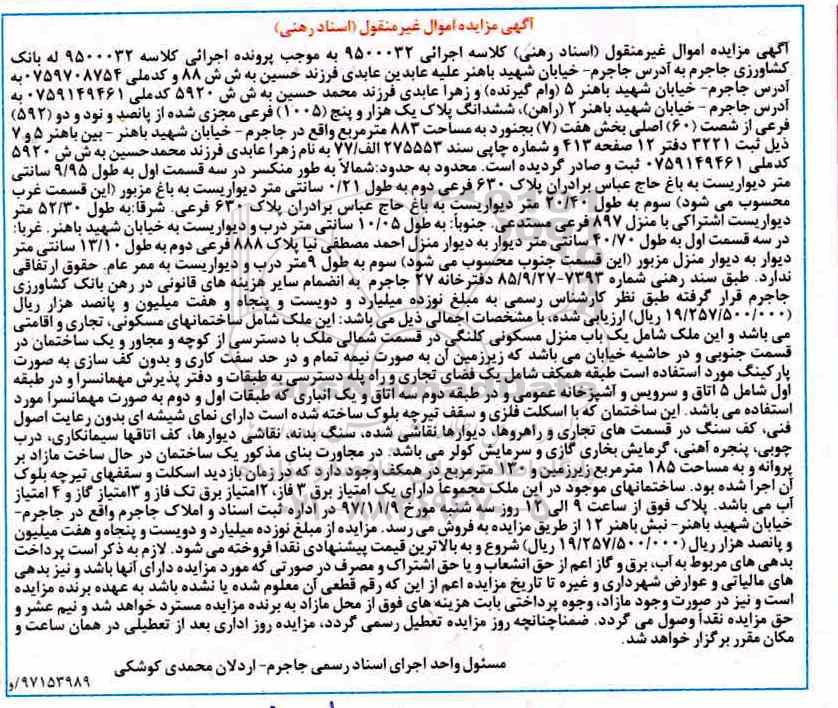 آگهی مزایده اموال غیرمنقول (اسناد رهنی)
آگهی مزایده اموال غیرمنقول (اسناد رهنی) کلاسه اجرائی ۹۵۰۰۰۳۲ به موجب پرونده اجرائی کلاسه ۹۵۰۰۰۳۲ له بانک
کشاورزی جاجرم به آدرس جاجرم- خیابان شهید باهنر علیه عابدین عابدی فرزند حسین به ش ش ۸۸ و کدملی ۰۷۵۹۷۰۸۷۵۴ به
آدرس جاجرم- خیابان شهید باهنر ۵ (وام گیرنده) و زهرا عابدی فرزند محمد حسین به ش ش ۵۹۲۰ کدملی ۰۷۵۹۱۴۹۴۶۱ به
آدرس جاجرم - خیابان شهید باهنر ۲ (راهن)، ششدانگ پلاک یک هزار و پنج (۱۰۰۵) فرعی مجزی شده از پانصد و نود و دو (۵۹۲)
فرعی از شصت (۶۰) اصلی بخش هفت (۷) بجنورد به مساحت ۸۸۳ مترمربع واقع در جاجرم - خیابان شهید باهنر - بین باهنر ۵ و ۷
ذیل ثبت ۳۲۲۱ دفتر ۱۲ صفحه ۴۱۳ و شماره چاپی سند ۲۷۵۵۵۳ الف/۷۷ به نام زهرا عابدی فرزند محمدحسین به ش ش ۵۹۲۰
کدملی ۰۷۵۹۱۴۹۴۶۱ ثبت و صادر گردیده است. محدود به حدود:شمالاً به طور منکسر در سه قسمت اول به طول ۹/۹۵ سانتی
متر دیواریست به باغ حاج عباس برادران پلاک ۶۳۰ فرعی دوم به طول ۰/۲۱ سانتی متر دیواریست به باغ مزبور (این قسمت غرب
محسوب می شود) سوم به طول ۲۰/۴۰ متر دیواریست به باغ حاج عباس برادران پلاک ۶۳۰ فرعی. شرقا:به طول ۵۲/۳۰ متر
دیواریست اشتراکی با منزل ۸۹۷ فرعی مستدعی. جنوباً: به طول ۱۰/۰۵ سانتی متر درب و دیواریست به خیابان شهید باهنر. غربا:
در سه قسمت اول به طول ۳۰/۷۰ سانتی متر دیوار به دیوار منزل احمد مصطفی نیا پلاک ۸۸۸ فرعی دوم به طول ۱۳/۱۰ سانتی متر
دیوار به دیوار منزل مزبور (این قسمت جنوب محسوب می شود) سوم به طول ۹متر درب و دیواریست به ممر عام. حقوق ارتفاقی
ندارد. طبق سند رهنی شماره ۷۳۹۳-۸۵/۹/۲۷ دفترخانه ۲۷ جاجرم به انضمام سایر هزینه های قانونی در رهن بانک کشاورزی
جاجرم قرار گرفته طبق نظر کارشناس رسمی به مبلغ نوزده میلیارد و دویست و پنجاه و هفت میلیون و پانصد هزار ریال
(۱۹/۲۵۷/۵۰۰/۰۰۰ ریال) ارزیابی شده، با مشخصات اجمالی ذیل می باشد: این ملک شامل ساختمانهای مسکونی، تجاری و اقامتی
می باشد و این ملک شامل یک باب منزل مسکونی کلنگی در قسمت شمالی ملک با دسترسی از کوچه و مجاور و یک ساختمان در
قسمت جنوبی و در حاشیه خیابان می باشد که زیرزمین آن به صورت نیمه تمام و در حد سفت کاری و بدون کف سازی به صورت
پارکینگ مورد استفاده است طبقه همکف شامل یک فضای تجاری و راه پله دسترسی به طبقات و دفتر پذیرش مهمانسرا و در طبقه
اول شامل ۵ اتاق و سرویس و آشپزخانه عمومی و در طبقه دوم سه اتاق و یک انباری که طبقات اول و دوم به صورت مهمانسرا مورد
استفاده می باشد. این ساختمان که با اسکلت فلزی و سقف تیرچه بلوک ساخته شده است دارای نمای شیشه ای بدون رعایت اصول
فنی، کف سنگ در قسمت های تجاری و راهروها، دیوارها نقاشی شده، سنگ بدنه، نقاشی دیوارها، کف اتاقها سیمانکاری، درب
چوبی، پنجره آهنی، گرمایش بخاری گازی و سرمایش کولر می باشد. در مجاورت بنای مذکور یک ساختمان در حال ساخت مازاد بر
پروانه و به مساحت ۱۸۵ مترمربع زیرزمین و ۱۳۰ مترمربع در همکف وجود دارد که در زمان بازدید اسکلت و سقفهای تیرچه بلوک
آن اجرا شده بود. ساختمانهای موجود در این ملک مجموعاً دارای یک امتیاز برق ۳ فاز، ۲امتیاز برق تک فاز و ۳امتیاز گاز و ۴ امتیاز
آب می باشد. پلاک فوق از ساعت ۹ الی ۱۲ روز سه شنبه مورخ ۹۷/۱۱/۹ در اداره ثبت اسناد و املاک جاجرم واقع در جاجرم-
خیابان شهید باهنر- نبش باهنر ۱۲ از طریق مزایده به فروش می رسد. مزایده از مبلغ نوزده میلیارد و دویست و پنجاه و هفت میلیون
و پانصد هزار ریال (۱۹/۲۵۷/۵۰۰/۰۰۰ ریال) شروع و به بالاترین قیمت پیشنهادی نقدا فروخته می شود. لازم به ذکر است پرداخت
بدهی های مربوط به آب، برق و گاز اعم از حق انشعاب و یا حق اشتراک و مصرف در صورتی که مورد مزایده دارای آنها باشد و نیز بدهی
های مالیاتی و عوارض شهرداری و غیره تا تاریخ مزایده اعم از این که رقم قطعی آن معلوم شده یا نشده باشد به عهده برنده مزایده
است و نیز در صورت وجود مازاد، وجوه پرداختی بابت هزینه های فوق از محل مازاد به برنده مزایده مسترد خواهد شد و نیم عشر و
حق مزایده نقداً وصول می گردد. ضمناچنانچه روز مزایده تعطیل رسمی گردد، مزایده روز اداری بعد از تعطیلی در همان ساعت و
مکان مقرر برگزار خواهد شد.
مسئول واحد اجرای اسناد رسمی جاجرم- اردلان محمدی کوشکی
۹۷۱۵۳۹۸۹/و